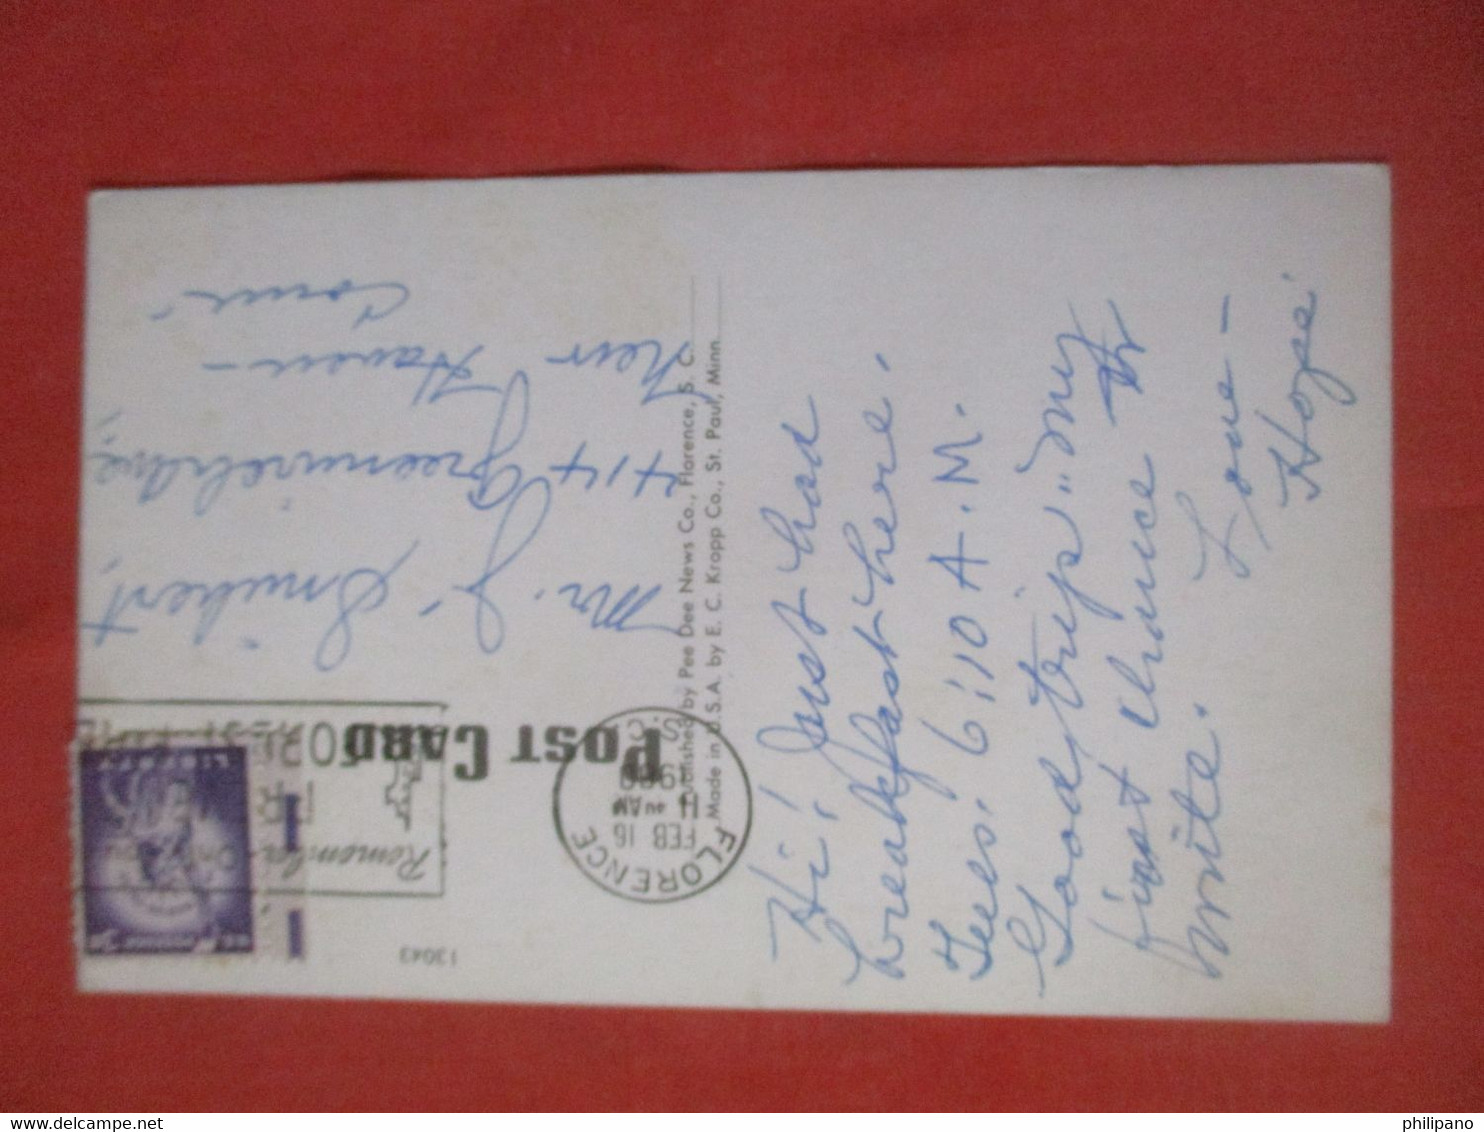 Hi! Just had
breakfast here.
Tues. 6:10 A.M.
Good trip "my
first chance to
write.
Love -
Hope
Published by Pee Dee News Co., Florence, S. C.
Made in U.S.A. by E. C. Kropp Co., St. Paul, Minn.
POST CARD
13043
FLORENCE
FEB 16
AM
S.C.
Remember
FOREST FIRE
LIBERTY
U.S. POSTAGE 3¢
Mr. J.
414
New Haven -
Conn -
philipano